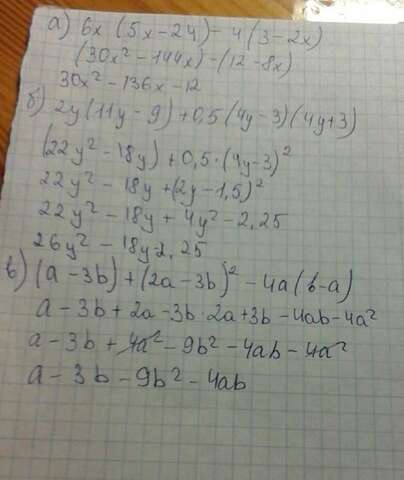 а) 6x (5x - 24) - 4 (3 - 2x)
(30x² - 144x) - (12 - 8x)
30x² - 136x - 12
б) 2y (11y - 9) + 0,5 (4y - 3) (4y + 3)
(22y² - 18y) + 0,5 · (4y - 3)²
22y² - 18y + (2y - 1,5)²
22y² - 18y + 4y² - 2,25
26y² - 18y - 2,25
в) (a - 3b) + (2a - 3b)² - 4a (b - a)
a - 3b + 2a - 3b · 2a + 3b - 4ab - 4a²
a - 3b + 4a² - 9b² - 4ab - 4a²
a - 3b - 9b² - 4ab